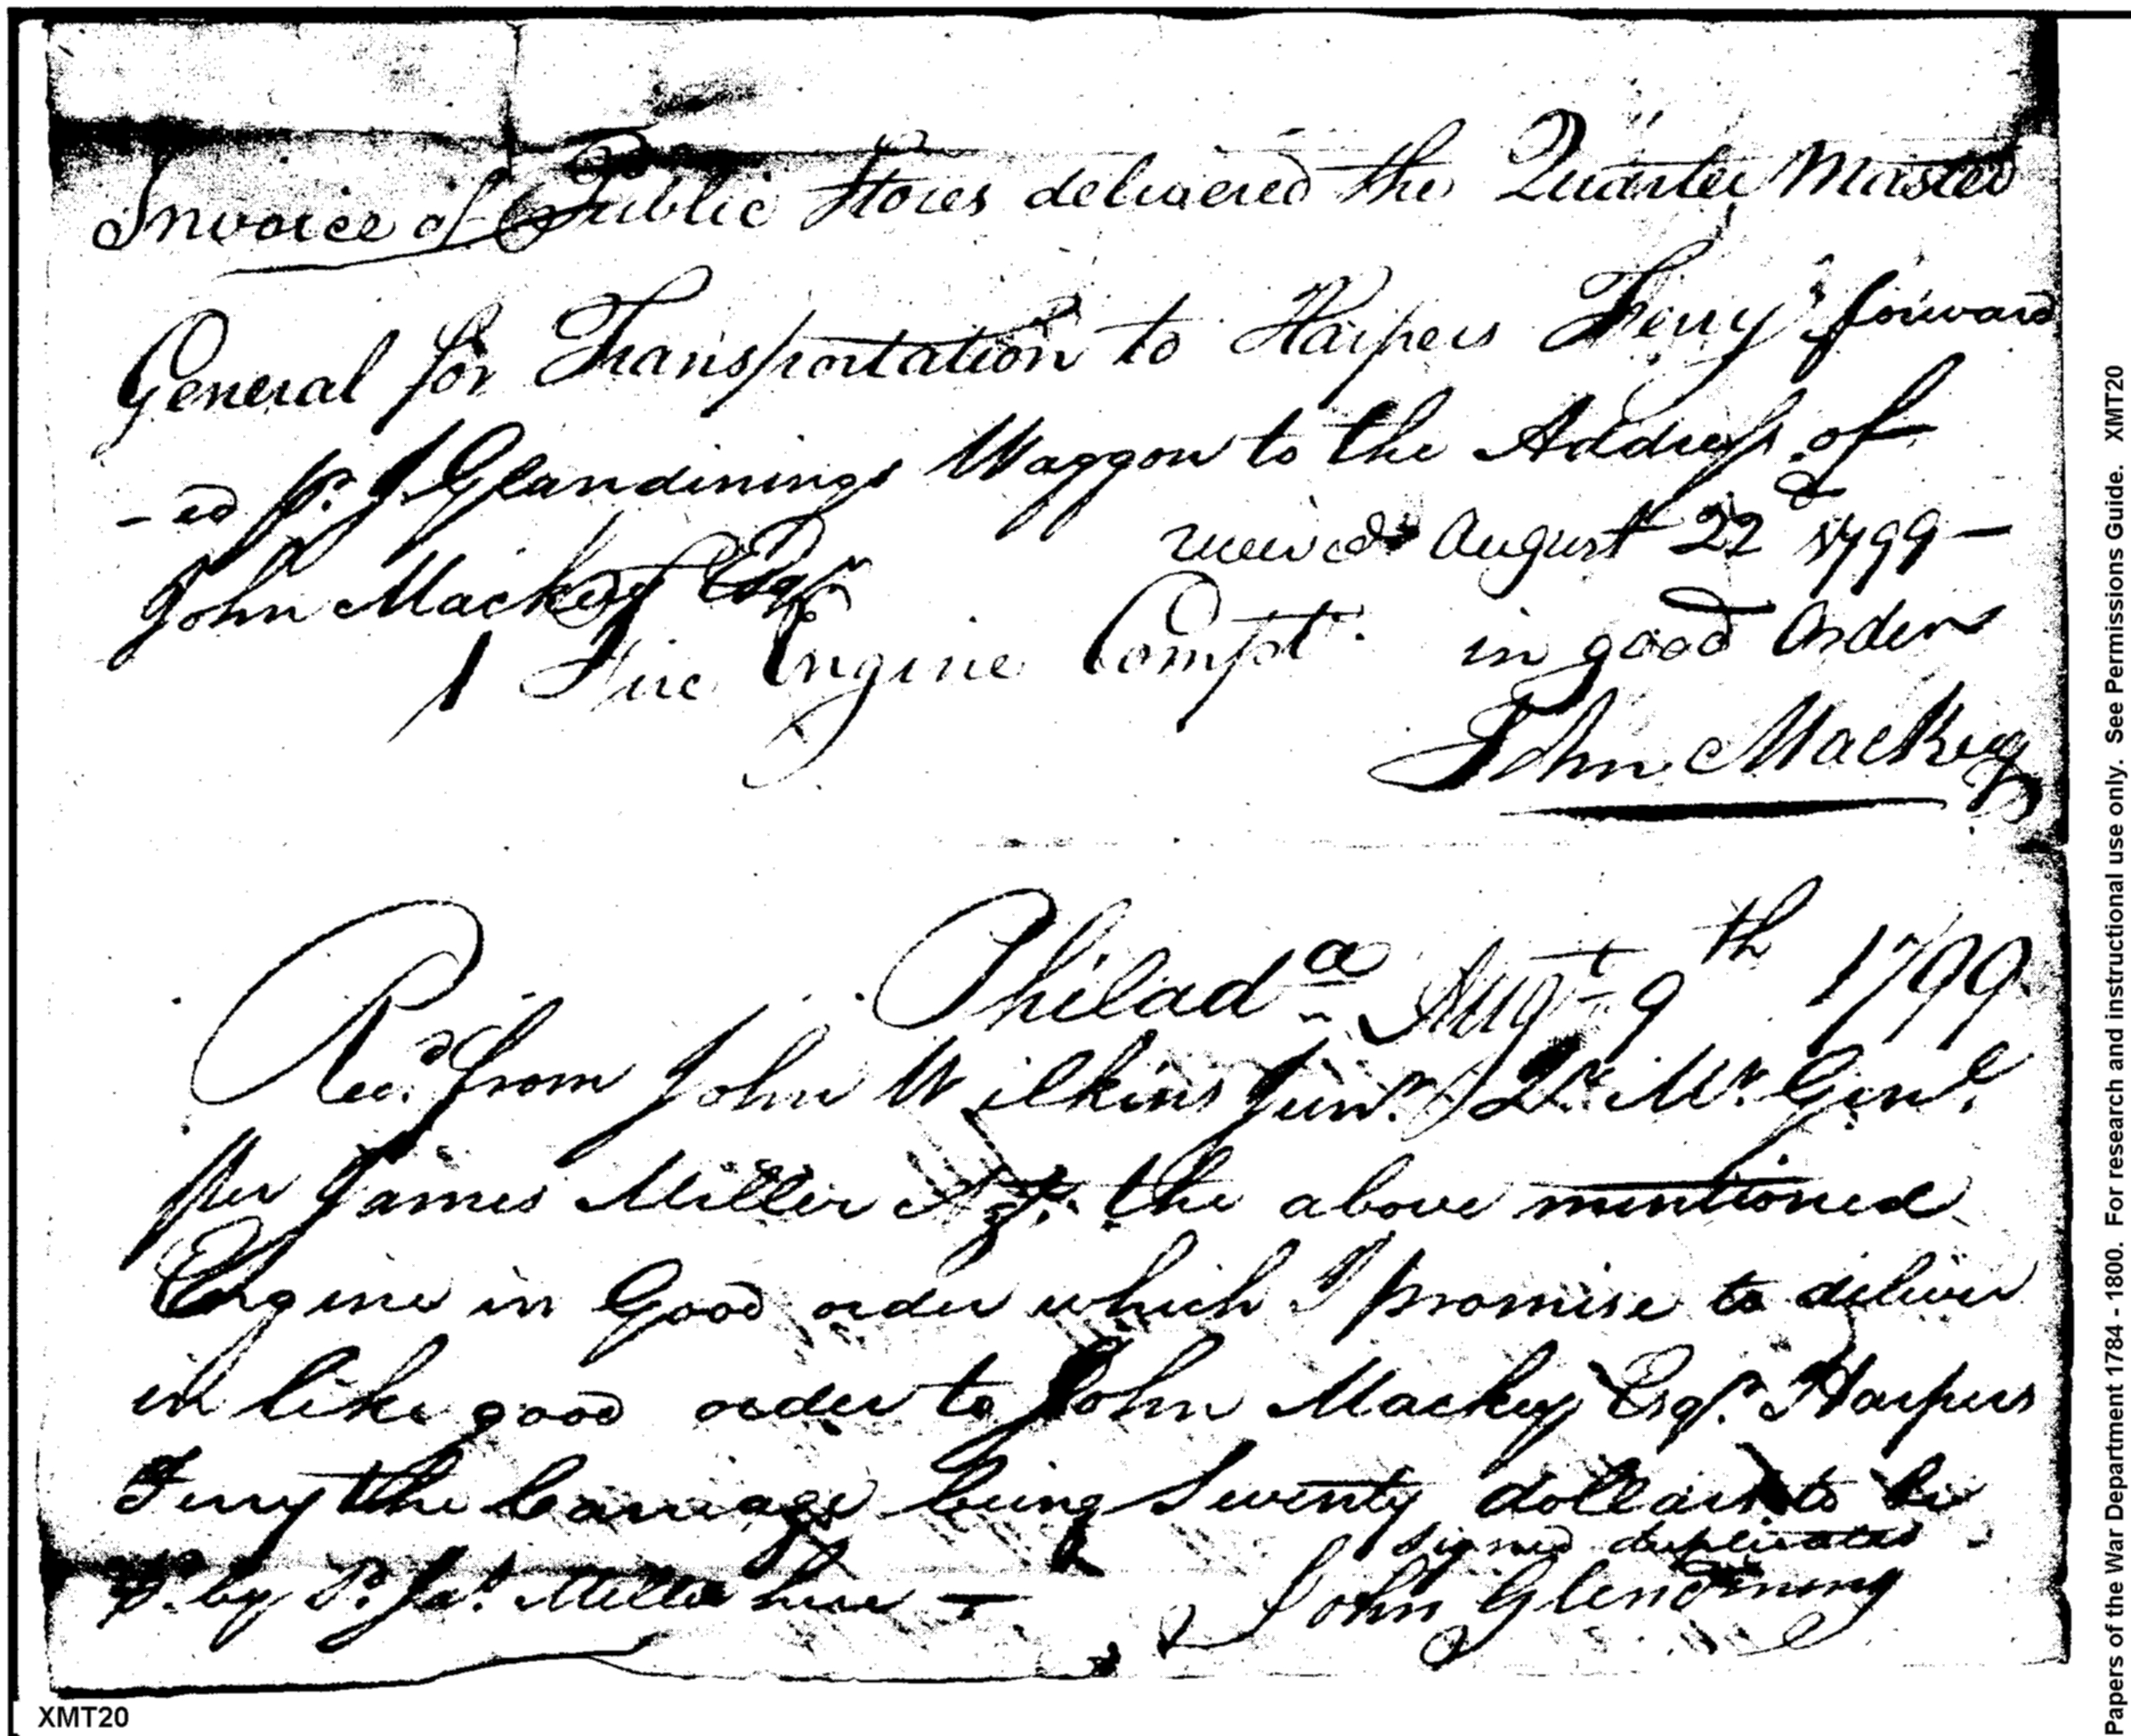 Invoice of Public Stores delivered the Quarter Master
General for Transportation to Harpers Ferry & forward
- ed pr. J Glandinings Waggon to the Address of
John Mackey Esqr
received August 22d 1799 -
1 Fire Engine Compt. in good Order
John Mackey
Philada Augt 9th 1799.
Recd. from John Wilkins Junr. Qr. Mr. Genl.
per James Miller Agt. the above mentioned
Engine in Good order which I promise to deliver
in like good order to John Mackey Esqr. Harpers
Ferry the Carriage being Seventy dollars to be
by Jas. Miller here -
signed duplicates
John Glendinning
XMT20
Papers of the War Department 1784 - 1800. For research and instructional use only. See Permissions Guide. XMT20